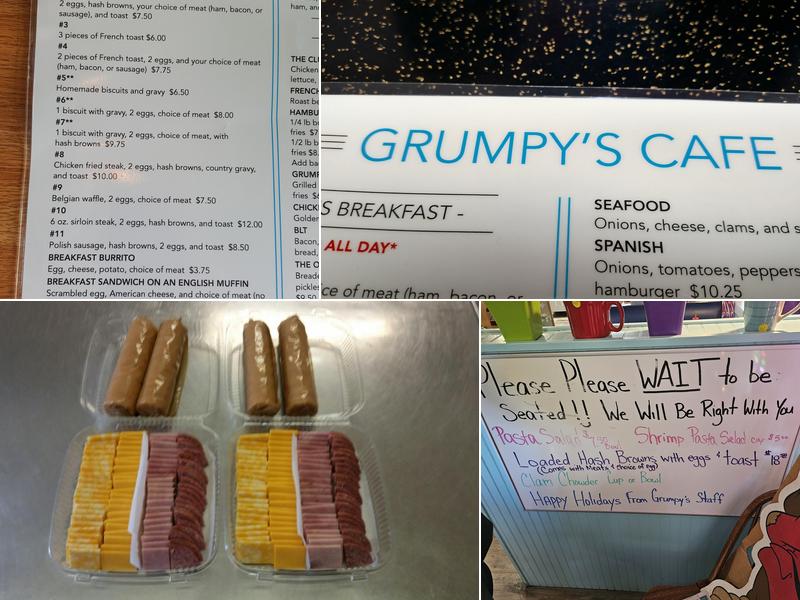 2 eggs, hash browns, your choice of meat (ham, bacon, or
sausage), and toast $7.50
#3
3 pieces of French toast $6.00
#4
2 pieces of French toast, 2 eggs, and your choice of meat
(ham, bacon, or sausage) $7.75
#5**
Homemade biscuits and gravy $6.50
#6**
1 biscuit with gravy, 2 eggs, choice of meat $8.00
#7**
1 biscuit with gravy, 2 eggs, choice of meat, with
hash browns $9.75
#8
Chicken fried steak, 2 eggs, hash browns, country gravy,
and toast $10.00
#9
Belgian waffle, 2 eggs, choice of meat $7.50
#10
6 oz. sirloin steak, 2 eggs, hash browns, and toast $12.00
#11
Polish sausage, hash browns, 2 eggs, and toast $8.50
BREAKFAST BURRITO
Egg, cheese, potato, choice of meat $3.75
BREAKFAST SANDWICH ON AN ENGLISH MUFFIN
Scrambled egg, American cheese, and choice of meat (no
ham, an
THE CL
Chicken
lettuce,
FRENC
Roast be
HAMBU
1/4 lb b
fries $7
1/2 lb b
fries $8
Add ba
GRUMP
Grilled
fries $6
CHICK
Golden
BLT
Bacon,
bread,
THE O
Breade
pickles
$9.50
GRUMPY'S CAFE
S BREAKFAST -
ALL DAY*
ice of meat (ham, bacon, or
SEAFOOD
Onions, cheese, clams, and s
SPANISH
Onions, tomatoes, peppers
hamburger $10.25
Please Please WAIT to be
Seated!! We Will Be Right With You
Pasta Salad Bowl Shrimp Pasta Salad cup
Loaded Hash Browns with eggs & toast
(Comes with Meats & choice of egg)
Clam Chowder Cup or Bowl
Happy Holidays From Grumpy's Staff